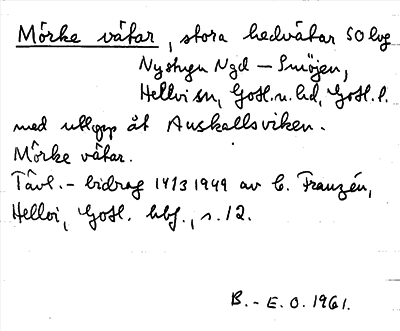 Mörke vätar, stora hedvätar SO hvg
Nystugu Ngd — Smöjen,
Hellvi sn, Gotl. n. hd, Gotl. l.
med utlopp åt Auskallsviken.
Mörke vätar.
Tävl. - bidrag 1949 av C. Franzén,
Hellvi, Gotl. hbf., s. 12.
B. - E. O. 1961.